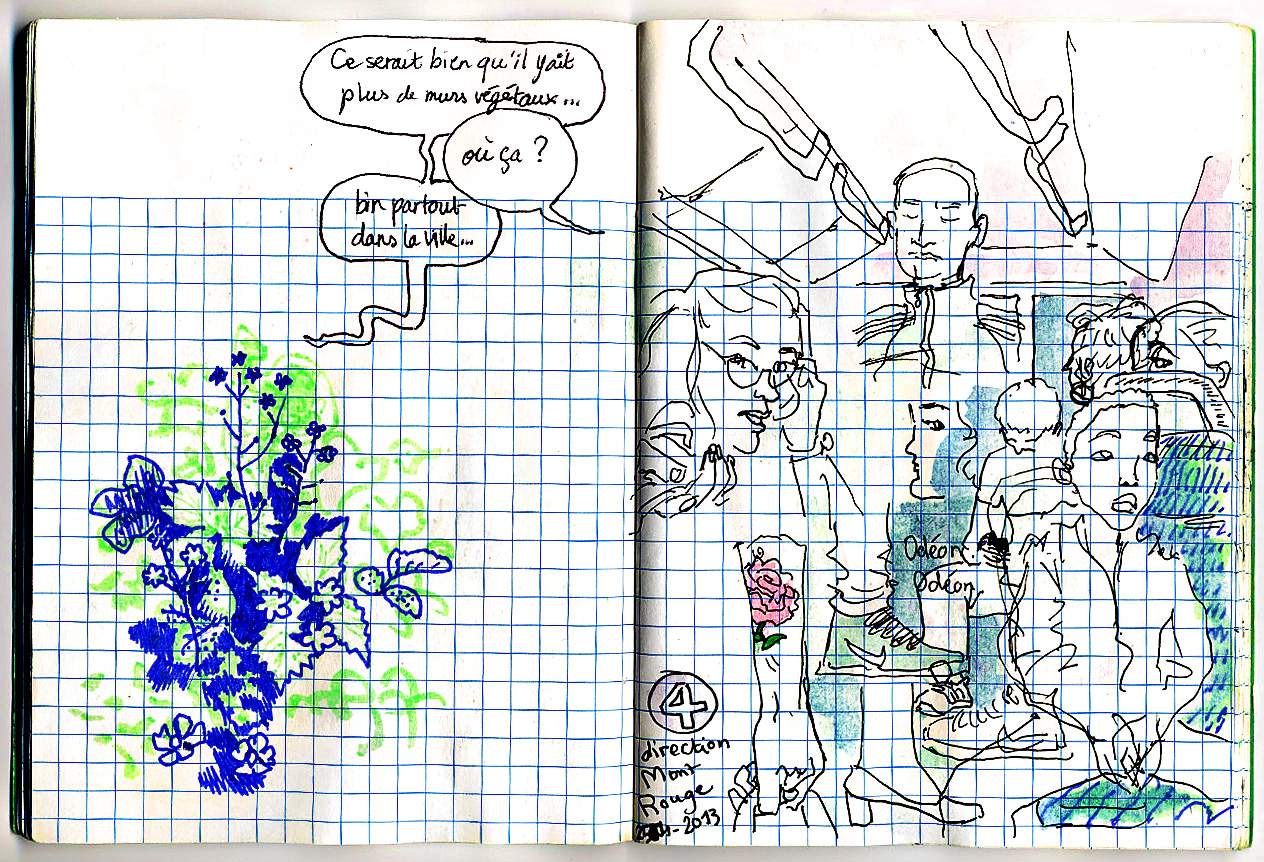 Ce serait bien qu'il yait
plus de murs végétaux...
où ça ?
bin partout
dans la ville...
Odéon
Odéon
4
direction
Mont
Rouge
2013